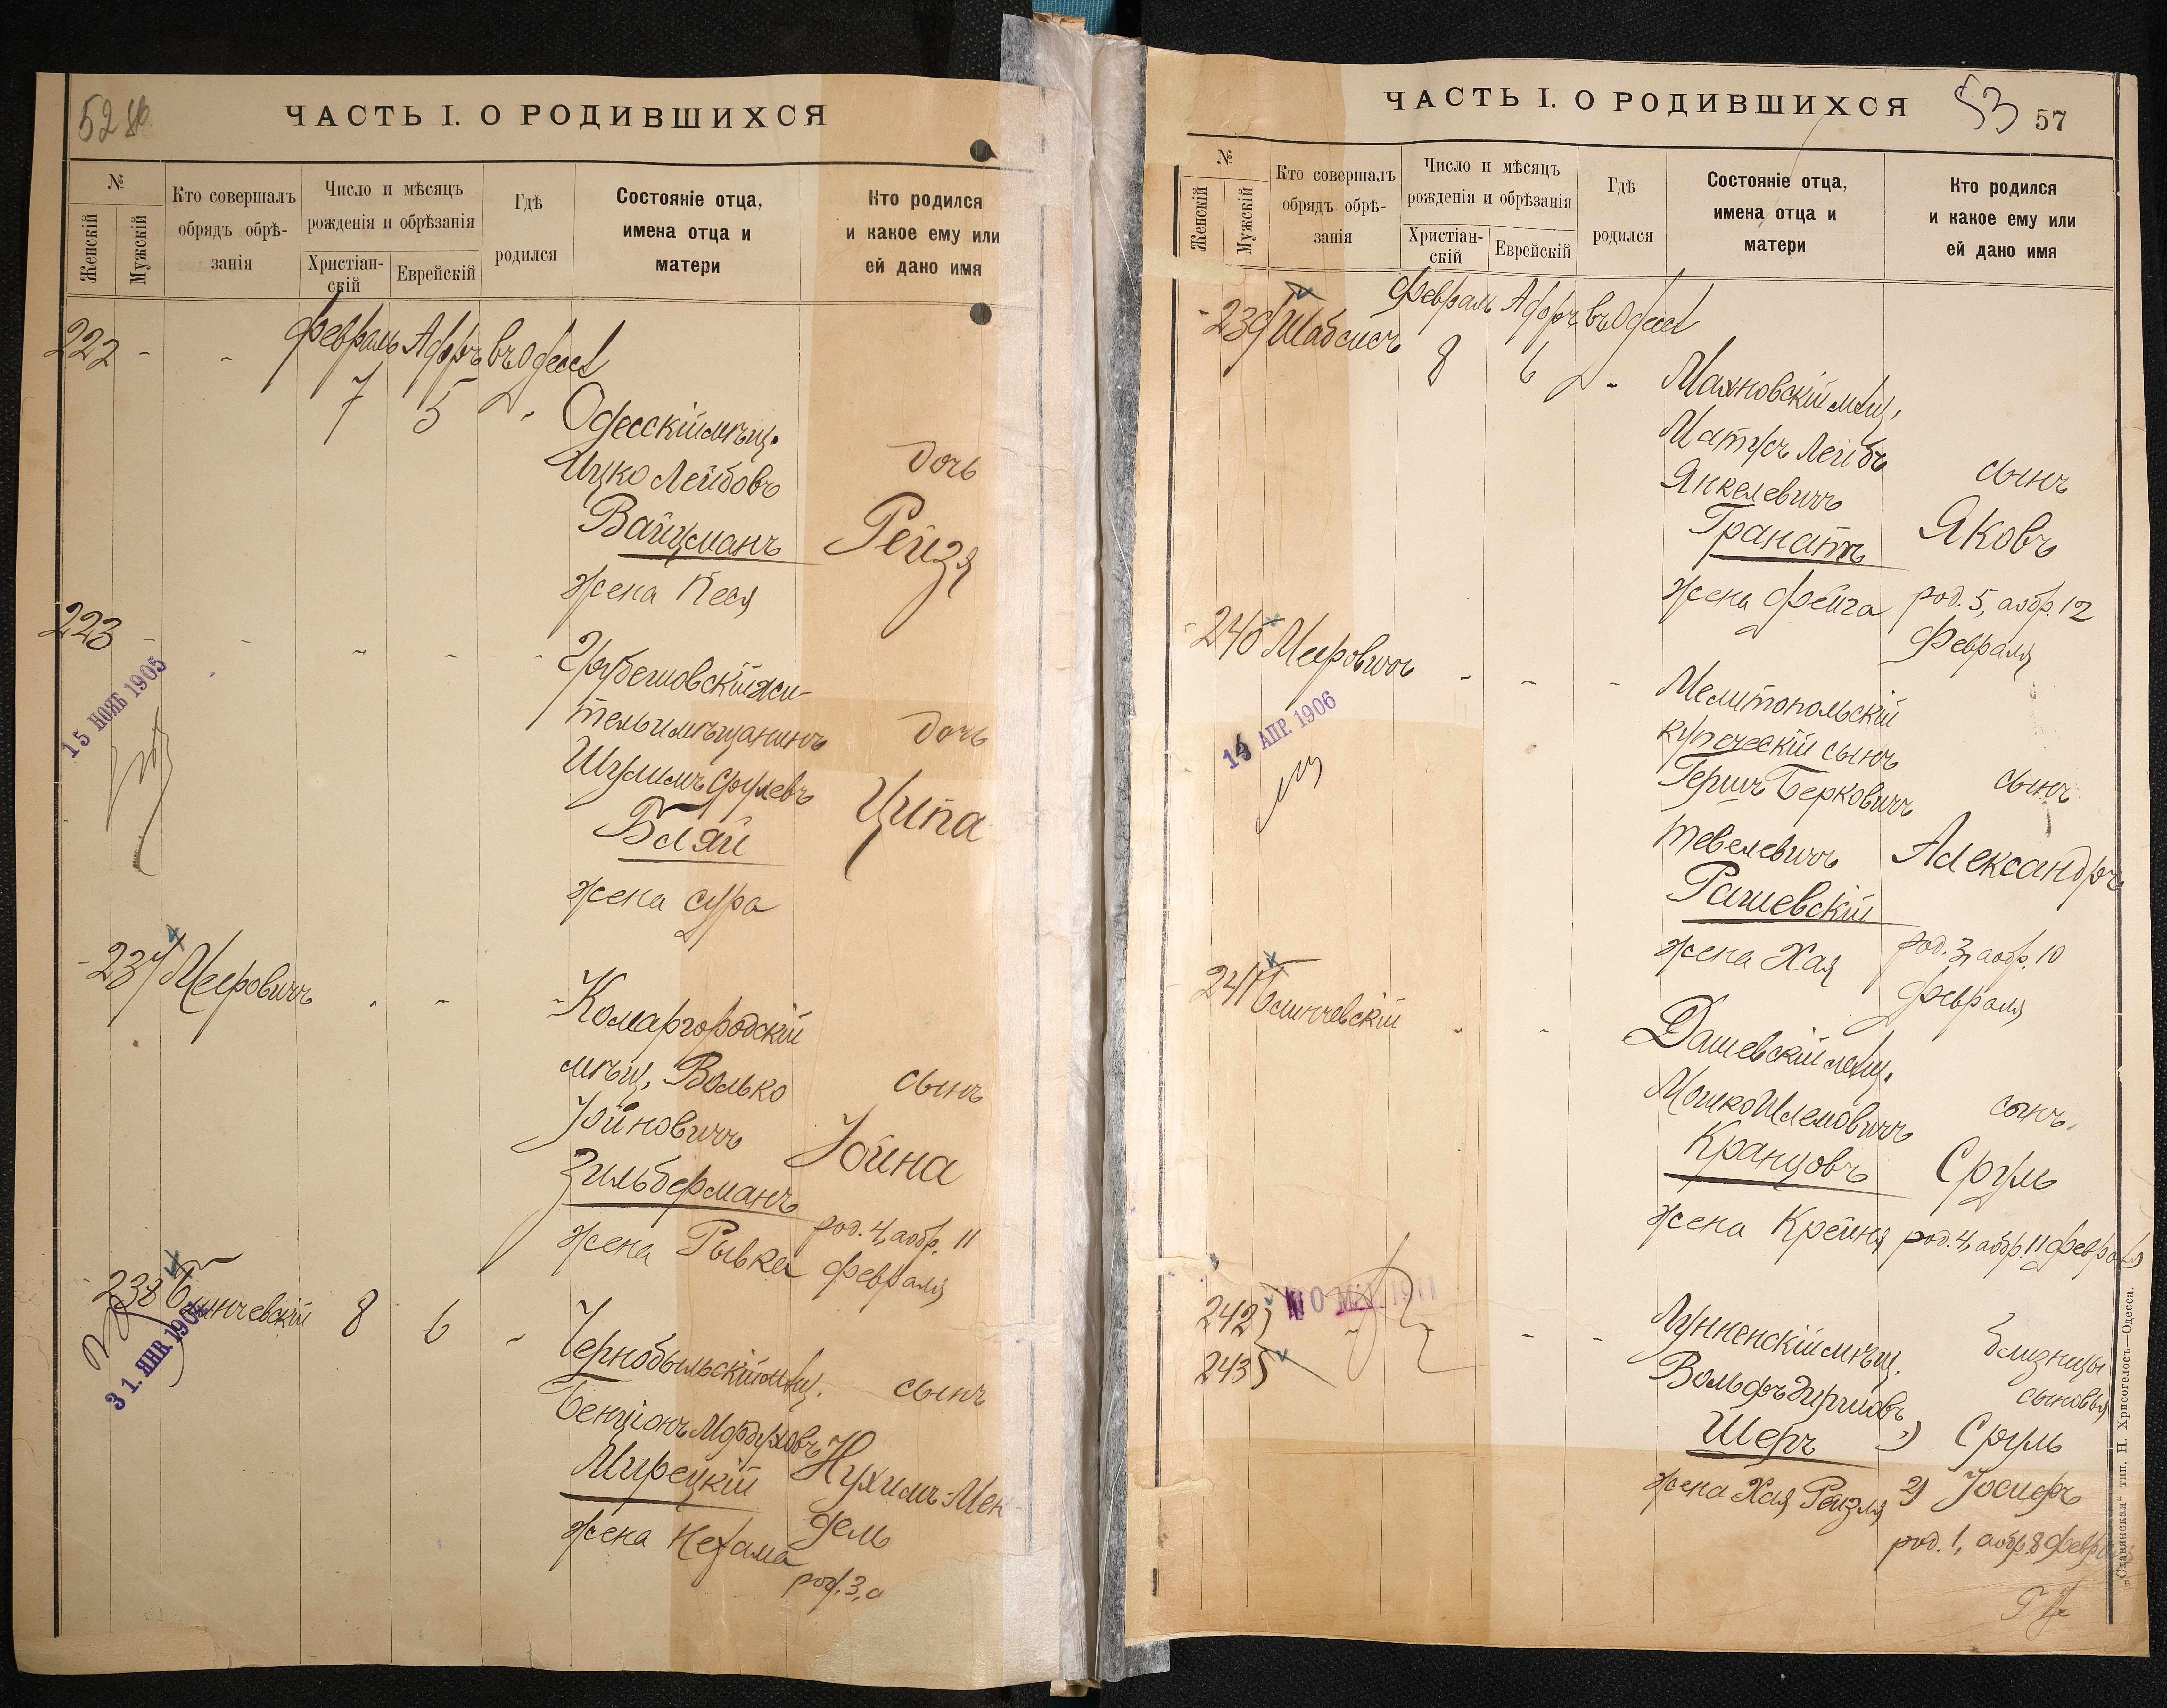 52
ЧАСТЬ I. О РОДИВШИХСЯ
№
Женскій
Мужскій
Кто совершалъ
обрядъ обрѣ-
занія
Число и мѣсяцъ
рожденія и обрѣзанія
Христіан-
скій
Еврейскій
Гдѣ
родился
Состояніе отца,
имена отца и
матери
Кто родился
и какое ему или
ей дано имя
222 - - Февраль Адаръ въ Одессѣ
7 5
Одесскій мѣщ.
Ицко Лейбовъ
Вайцманъ
жена Кеся
дочь
Рейзя
223 - - - - -
15 НОЯБ 1905
Грубешовскій жи-
тель и мѣщанинъ
Шулимъ Срулевъ
Бляй
жена Сура
дочь
Ципа
237 Мееровичъ - -
Комаргородскій
мѣщ. Волько
Іойновичъ
Зильберманъ
жена Рывка
сынъ
Іойна
род. 4, а обр. 11
февраля
238 8 6 -
31. ЯНВ 190
Чернобыльскій мѣщ.
Бенціонъ Мордуховъ
Мирецкій
жена Нехама
сынъ
Нухимъ-Мен
дель
род. 3, а
ЧАСТЬ I. О РОДИВШИХСЯ
53
57
№
Женскій
Мужскій
Кто совершалъ
обрядъ обрѣ-
занія
Число и мѣсяцъ
рожденія и обрѣзанія
Христіан-
скій
Еврейскій
Гдѣ
родился
Состояніе отца,
имена отца и
матери
Кто родился
и какое ему или
ей дано имя
- 239 Шабсисъ Февраль Адаръ въ Одессѣ
8 6 -
Маяновскій мѣщ.
Матусъ Лейбъ
Янкелевичъ
Гранатъ
жена Фейга
сынъ
Яковъ
род. 5, а обр. 12
Февраля
- 240 Мееровичъ - - -
АПР. 1906
Мелитопольскій
купеческій сынъ
Гершъ Берковичъ
Тевелевичъ
Рашевскій
жена Хая
сынъ
Александръ
род. 3, а обр. 10
февраля
241 - -
Дашевскій мѣщ.
Мошко Шлемовичъ
Кранцовъ
жена Крейня
сынъ
Сруль
род. 4, а обр. 11 февраля
242
243
1911
Лунненскій мѣщ.
Вольфъ Гиршовъ
Шеръ
жена Хая Рейзля
близнецы
сыновья
1) Сруль
2) Іосифъ
род. 1, а обр. 8 февр
„Славянская" тип. Н. Хрисогелосъ—Одесса.